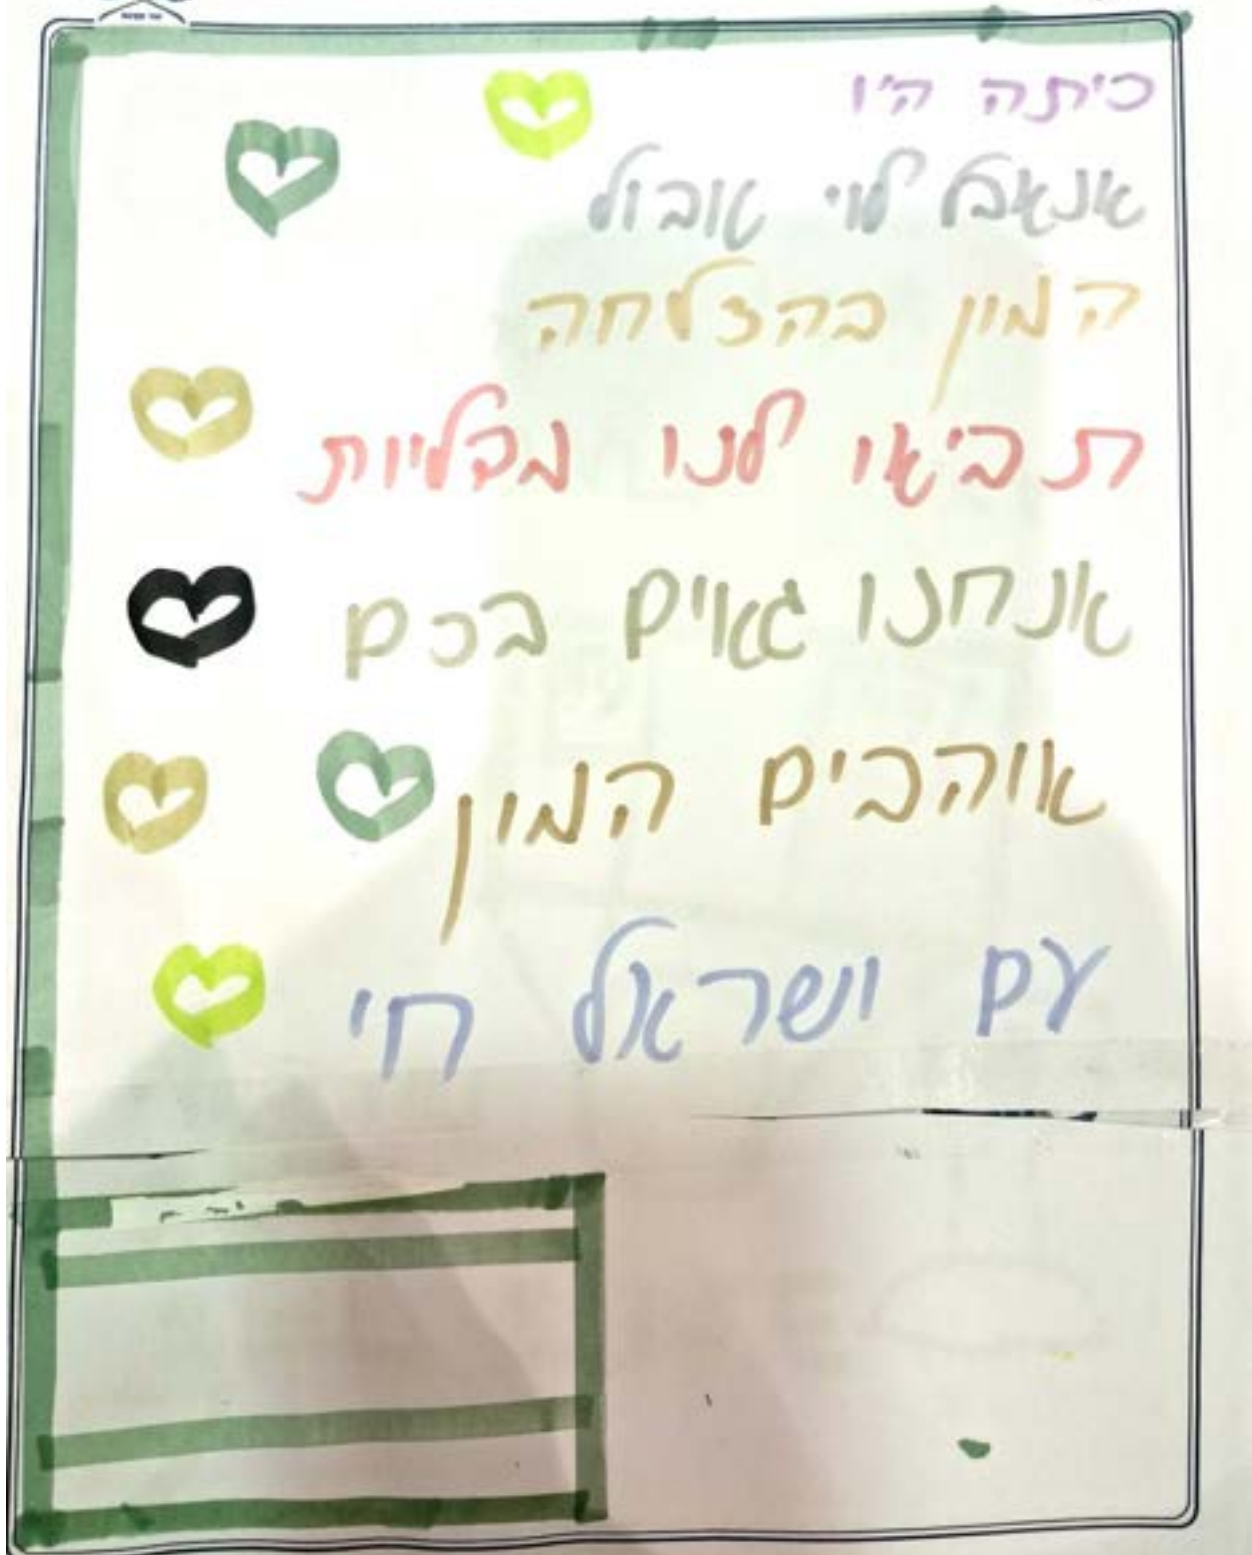 כיתה ה'ו
אנאבל לוי טובול
המון בהצלחה
תביאו לנו מדליות
אנחנו גאוים בכם
אוהבים המון
עם ישראל חי